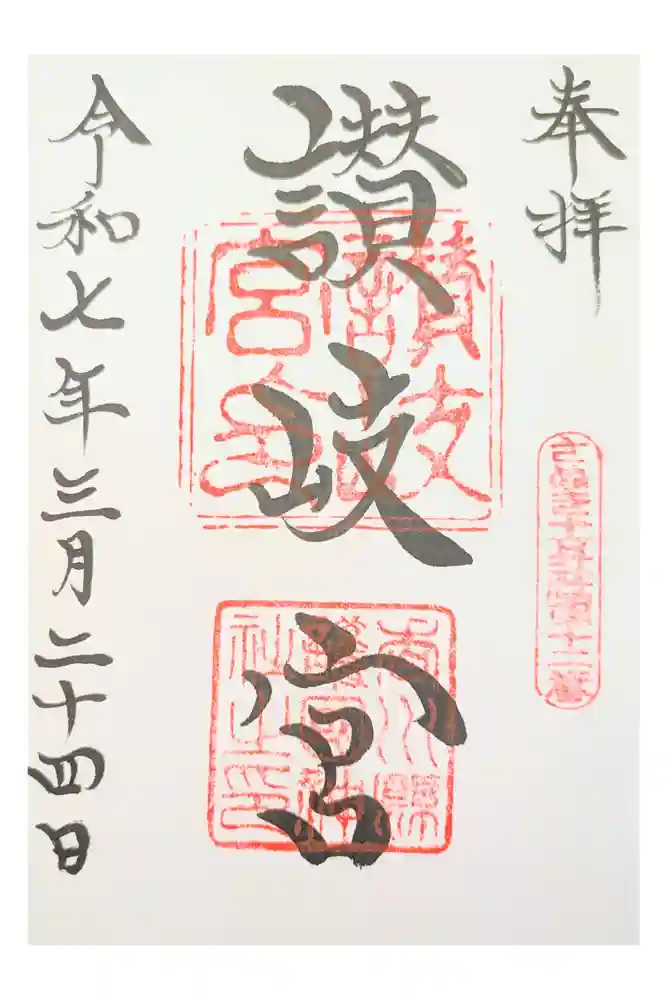 奉拝
讃岐宮
讃岐宮
香川縣護國神社之印
令和七年三月二十四日